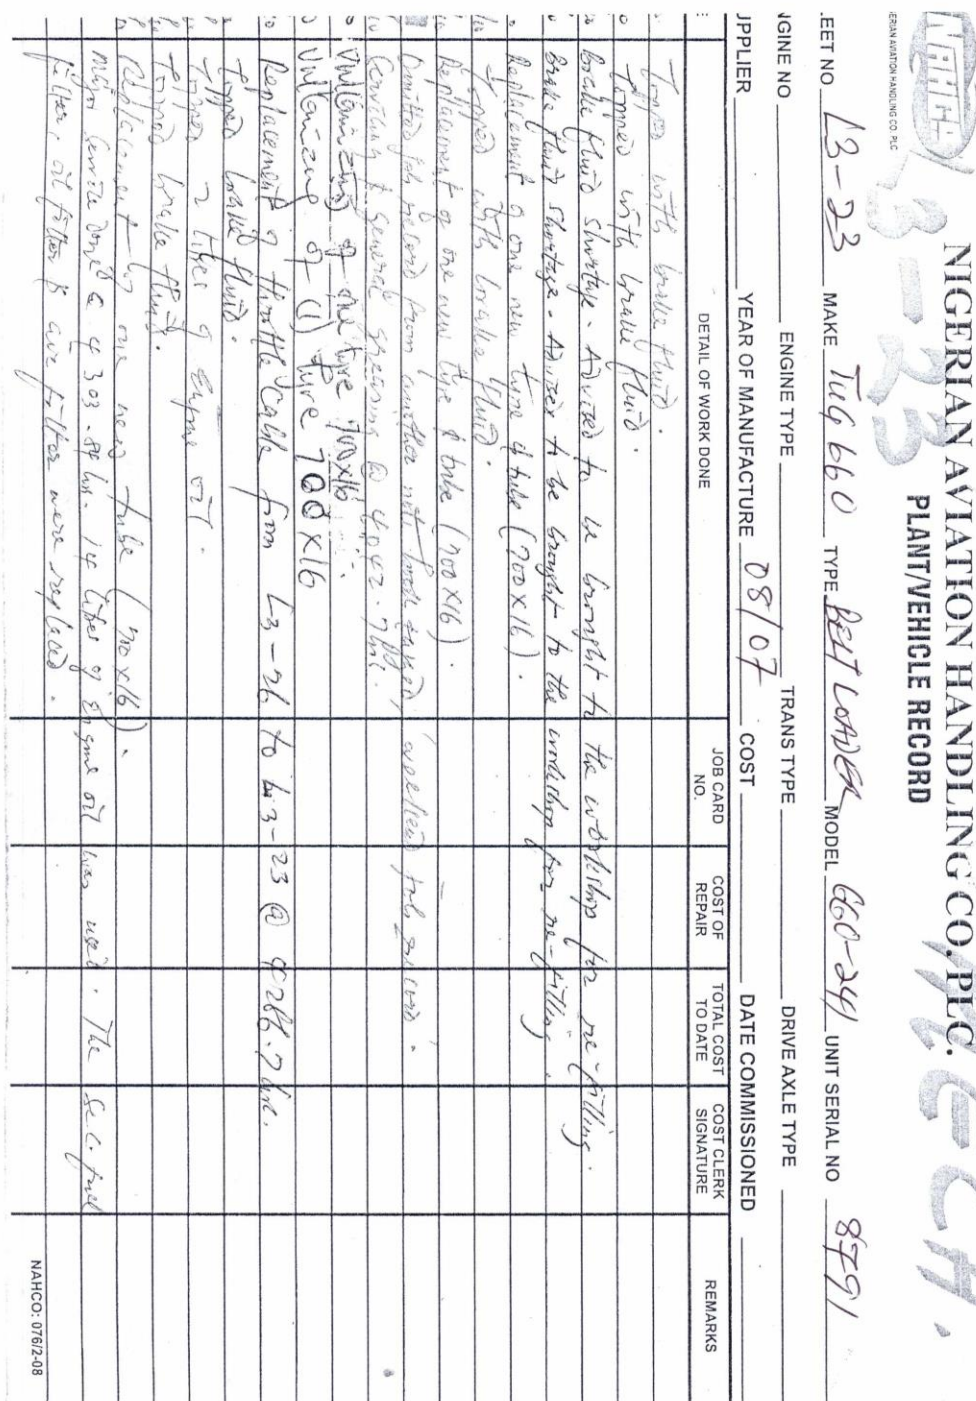 NAHCO
NIGERIAN AVIATION HANDLING CO. PLC.
ERIAN AVIATION HANDLING CO. PLC
PLANT/VEHICLE RECORD
L3-23
TECH.
LEET NO L3-23 MAKE TUG 660 TYPE BELT LOADER MODEL 660-241 UNIT SERIAL NO 8791
NGINE NO ENGINE TYPE TRANS TYPE DRIVE AXLE TYPE
UPPLIER YEAR OF MANUFACTURE 08/07 COST DATE COMMISSIONED
DETAIL OF WORK DONE JOB CARD NO. COST OF REPAIR TOTAL COST TO DATE COST CLERK SIGNATURE REMARKS
Topped with brake fluid.
Topped with brake fluid.
brake fluid shortage. Advised to be brought to the workshop for re-filling.
brake fluid shortage. Advised to be brought to the workshop for re-filling.
Replacement of one new tyre & tube (700x16).
Topped with brake fluid.
Replacement of one new tyre & tube (700x16).
Omitted job record from another record.
Servicing & general greasing @ 4042.7hrs.
Vulcanizing of one tyre 700x16.
Vulcanizing of (1) tyre 700x16
Replacement of throttle cable from L3-26 to L3-23 @ 4286.7hrs.
Topped brake fluid.
Topped 2 litres of engine oil.
Topped brake fluid.
Replacement by one new tube (700x16).
Major service done @ 4303. hrs. 14 litres of Engine oil was used. The sec. fuel
filter, oil filter & air filter were replaced.
NAHCO: 076/2-08